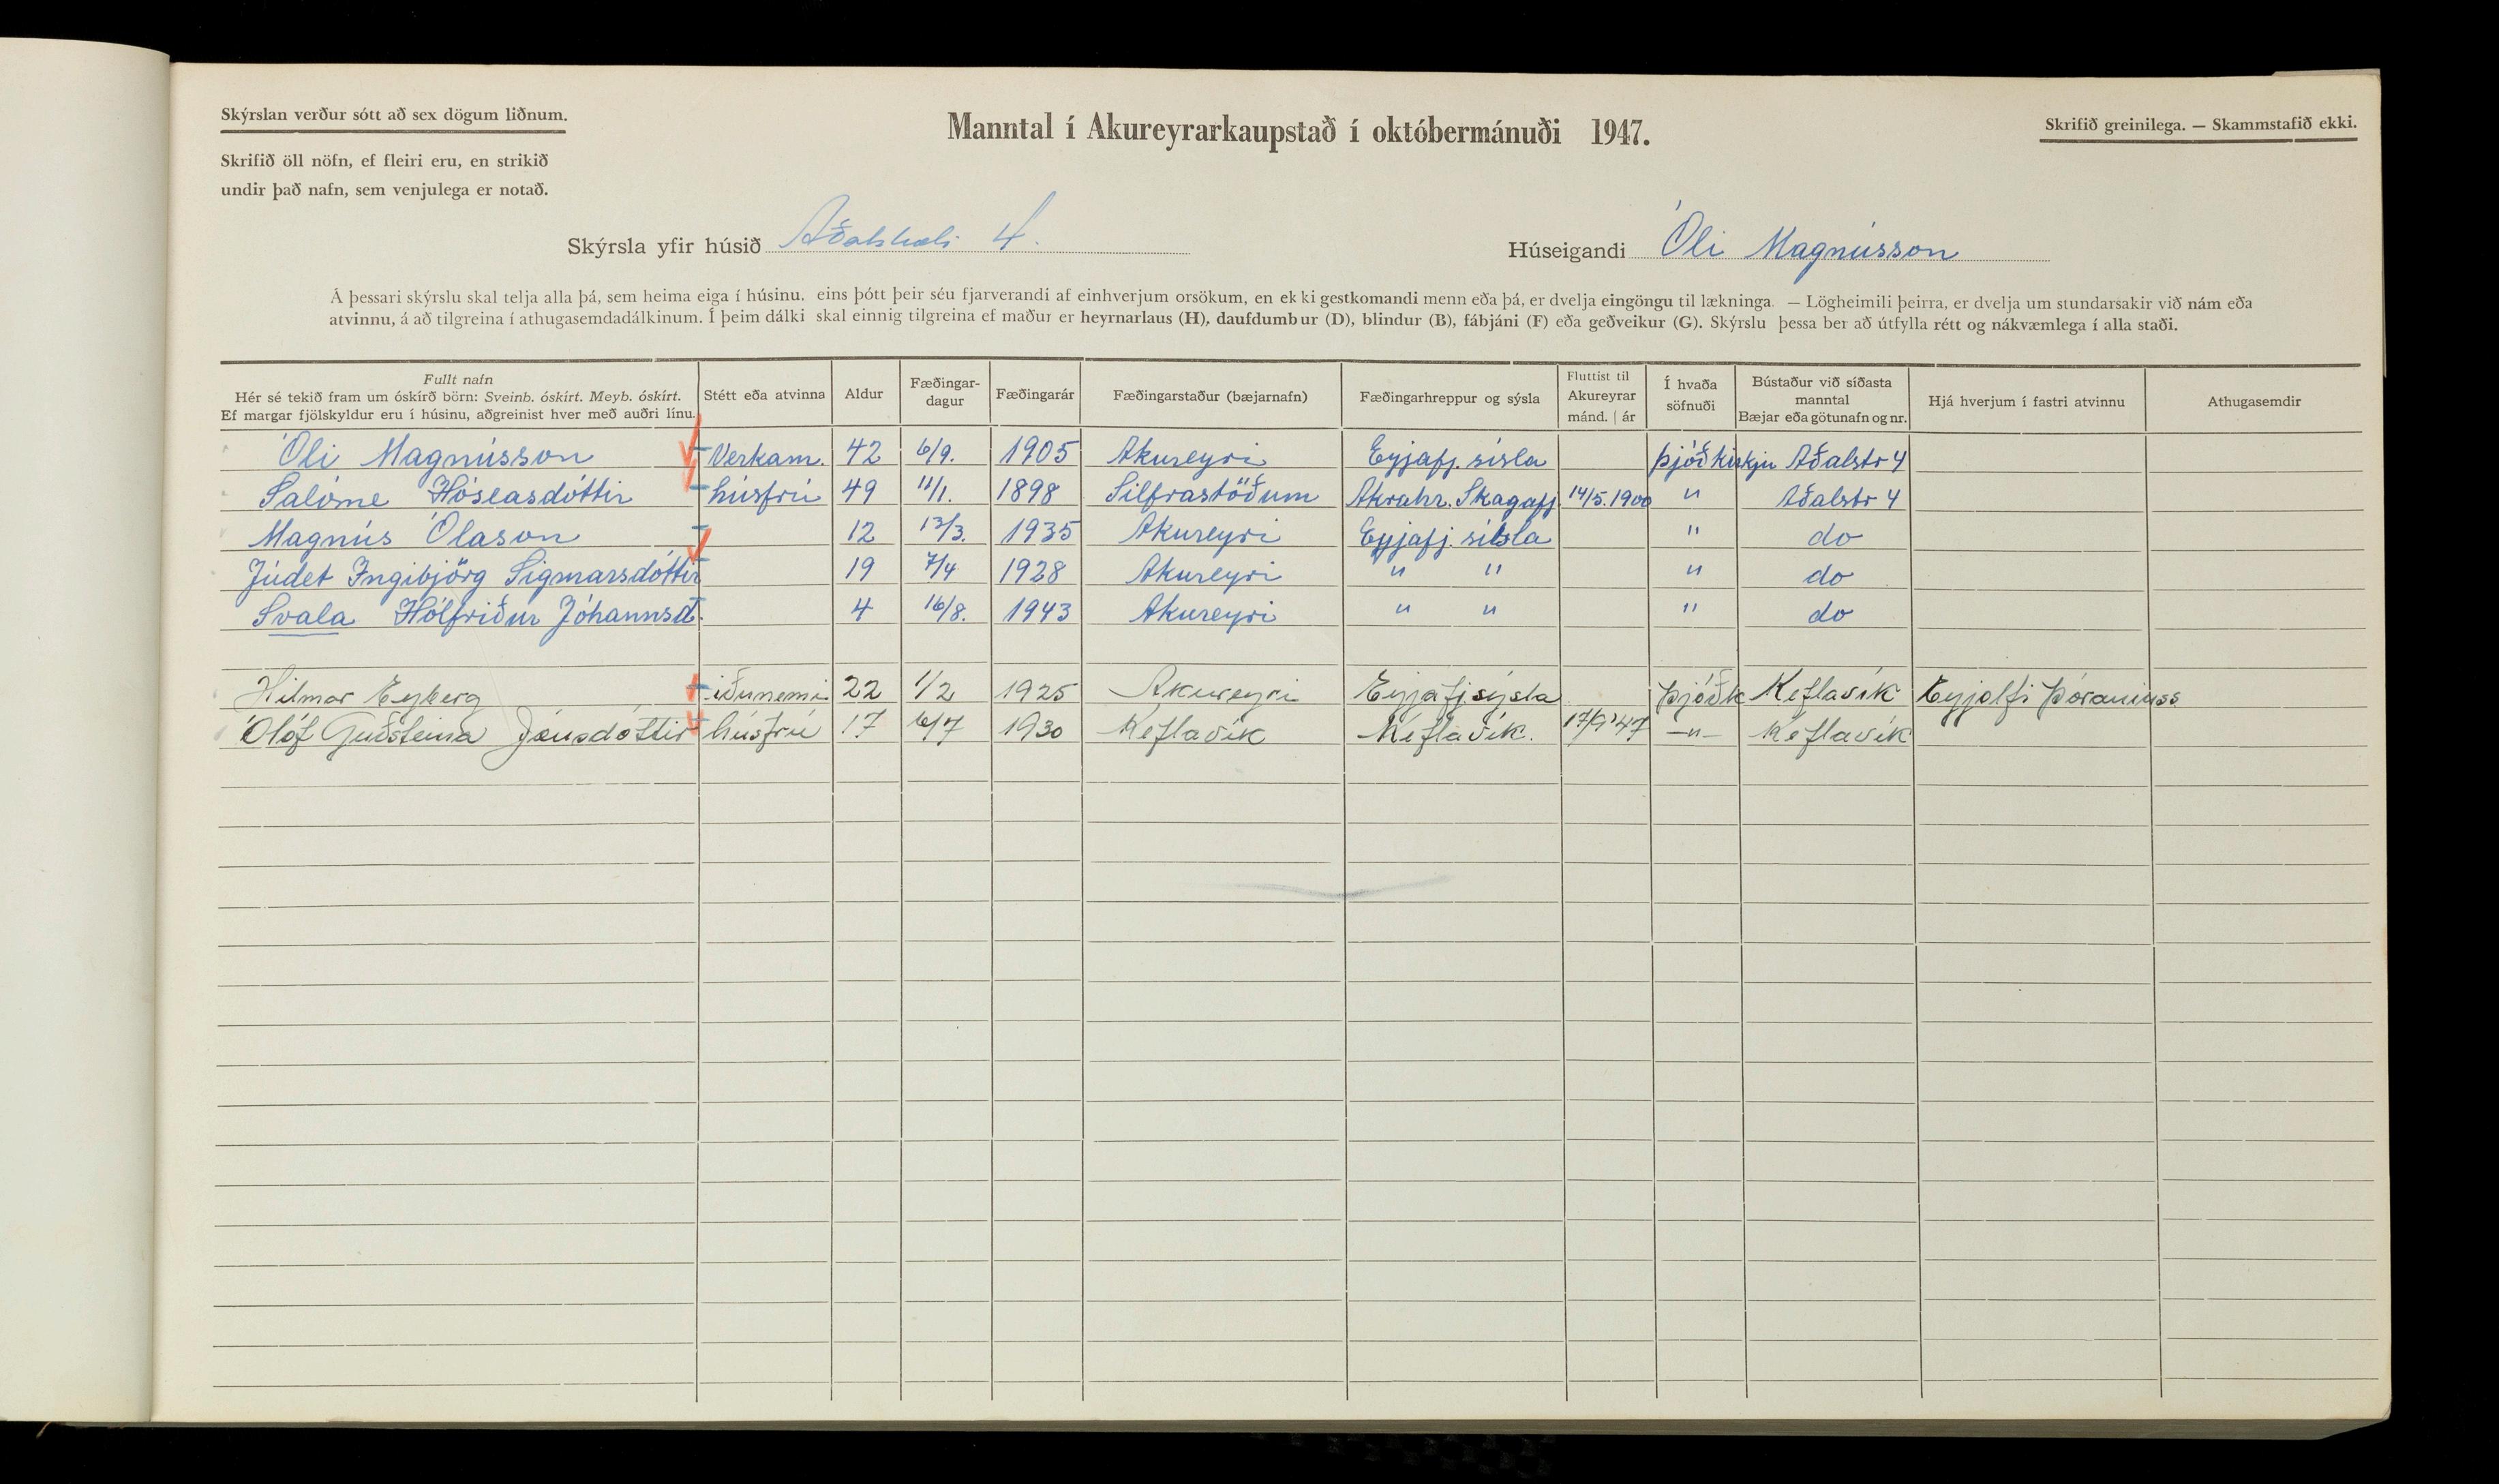 Skýrslan verður sótt að sex dögum liðnum.
Manntal í Akureyrarkaupstað í októbermánuði 1947.
Skrifið greinilega. — Skammstafið ekki.
Skrifið öll nöfn, ef fleiri eru, en strikið
undir það nafn, sem venjulega er notað.
Skýrsla yfir húsið Aðalstræti 4.
Húseigandi Óli Magnússon
Á þessari skýrslu skal telja alla þá, sem heima eiga í húsinu, eins þótt þeir séu fjarverandi af einhverjum orsökum, en ekki gestkomandi menn eða þá, er dvelja eingöngu til lækninga. — Lögheimili þeirra, er dvelja um stundarsakir við nám eða
atvinnu, á að tilgreina í athugasemdadálkinum. Í þeim dálki skal einnig tilgreina ef maður er heyrnarlaus (H), daufdumbur (D), blindur (B), fábjáni (F) eða geðveikur (G). Skýrslu þessa ber að útfylla rétt og nákvæmlega í alla staði.
Fullt nafn
Hér sé tekið fram um óskírð börn: Sveinb. óskírt. Meyb. óskírt.
Ef margar fjölskyldur eru í húsinu, aðgreinist hver með auðri línu.
Stétt eða atvinna
Aldur
Fæðingar-
dagur
Fæðingarár
Fæðingarstaður (bæjarnafn)
Fæðingarhreppur og sýsla
Fluttist til
Akureyrar
mánd. | ár
Í hvaða
söfnuði
Bústaður við síðasta
manntal
Bæjar eða götunafn og nr.
Hjá hverjum í fastri atvinnu
Athugasemdir
Óli Magnússon Verkam. 42 6/9. 1905 Akureyri Eyjafj. sísla Þjóðkirkju Aðalstr 4
Salóme Hóseasdóttir húsfrú 49 11/1. 1898 Silfrastöðum Akrahr. Skagafj. 14/5.1900 " Aðalstr 4
Magnús Ólason 12 13/3. 1935 Akureyri Eyjafj. sísla " do
Júdet Ingibjörg Sigmarsdóttir 19 7/4 1928 Akureyri " " " do
Svala Hólfriður Jóhannsd. 4 16/8. 1943 Akureyri " " " do
Hilmar Eyberg iðunemi 22 1/2 1925 Akureyri Eyjafjsýsla Þjóðk Keflavík Eyjolfi Þóraninss
Ólöf Guðsteina Jónsdóttir húsfrú 17 6/7 1930 Keflavík Keflavík. 17/9'47 —"— Keflavík